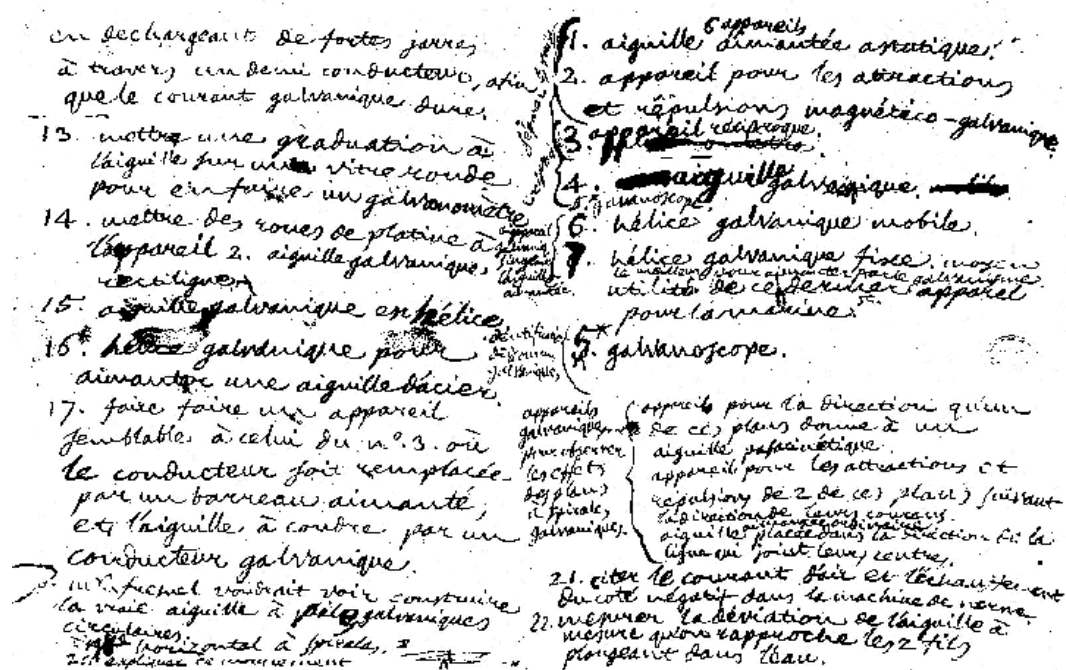 en dechargeant de fortes jarres
à travers un demi conducteur, afin
que le courant galvanique dure.
13. mettre une graduation à
l'aiguille sur une vitre ronde
pour en faire un galvanomètre
14. mettre des roues de platine à
l'appareil 2. aiguille galvanique,
rectiligne,
15. aiguille galvanique en hélice
16. hélice galvanique pour
aimanter une aiguille d'acier.
17. faire faire un appareil
semblable à celui du n°. 3. où
le conducteur soit remplacée
par un barreau aimanté,
et l'aiguille à coudre par un
conducteur galvanique.
mr. fresnel voudrait voir construire
la vraie aiguille à galvaniques
circulaires.
horizontal à spirales,
expliquer ce mouvement
6 appareils
1. aiguille aimantée astatique.
2. appareil pour les attractions
et répulsions magnético-galvanique
3. appareil réciproque.
4. aiguille galvanique
5* galvanoscope
6. hélice galvanique mobile.
7. hélice galvanique fixe. moyen
le meilleur pour aimanter par le galvanisme
utilité de ce dernier appareil
pour la marine.
5* galvanoscope.
appareils
galvaniques
pour observer
les effets
des plans
et spirales
galvaniques.
appareil pour la direction qu'un
de ces plans donne à un
aiguille
appareil pour les attractions et
répulsions de 2 de ces plans suivant
la direction de leurs courans.
aiguille placée dans la direction de la
ligne qui joint leurs centres.
21. citer le courant d'air et
du coté négatif dans la machine de nerne
22. mesurer la déviation de l'aiguille à
mesure qu'on rapproche les 2 fils
plongeant dans l'eau.